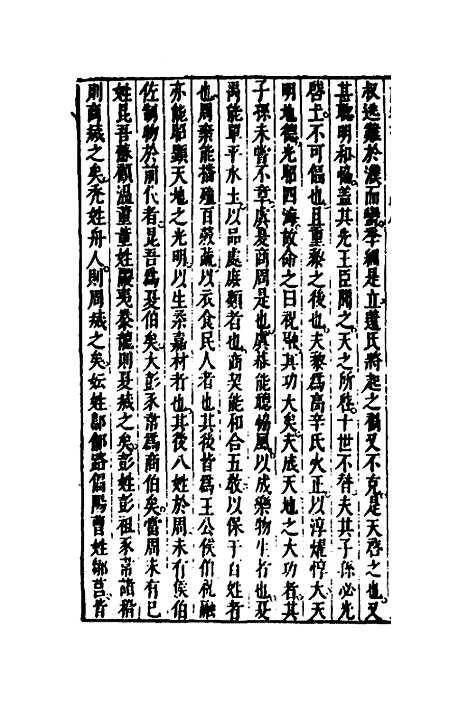 叔逃難於濮而蠻季紃是立薳氏將起之禍又不克是天啓之也又
甚聰明和協蓋其先王臣聞之天之所啓十世不替夫其子孫必光
啓土不可偪也且重黎之後也夫黎爲高辛氏火正以淳燿惇大天
明地德光昭四海故命之曰祝融其功大矣夫成天地之大功者其
子孫未嘗不章虞夏商周是也虞幕能聽協風以成樂物生者也夏
禹能單平水土以品處庶類者也商契能和合五敎以保于百姓者
也周棄能播殖百穀蔬以衣食民人者也其後皆爲王公侯伯祝融
亦能昭顯天地之光明以生柔嘉材者也其後八姓於周未有侯伯
佐制物於前代者昆吾爲夏伯矣大彭豕韋爲商伯矣當周未有已
姓昆吾蘇顧溫董董姓鬷夷豢龍則夏滅之矣彭姓彭祖豕韋諸稽
則商滅之矣禿姓舟人則周滅之矣妘姓鄔鄶路偪陽曹姓鄒莒皆